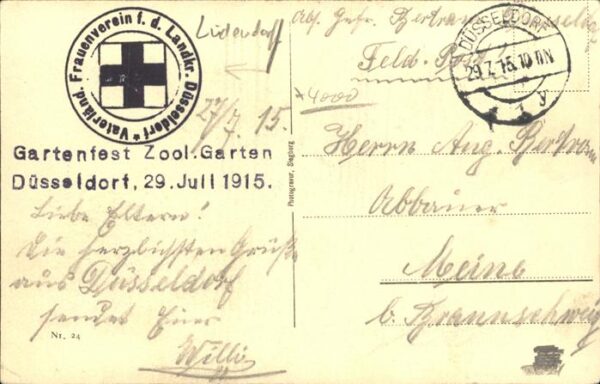 Vaterländ. Frauenverein f. d. Landkr. Düsseldorf *
Ludendorf
27/7. 15.
Gartenfest Zool.-Garten
Düsseldorf, 29. Juli 1915.
Liebe Eltern!
Die herzlichsten Grüße
aus Düsseldorf
sendet Euer
Willi
Nr. 24
Photogravur, Siegburg
Abs. Gefr. Bertram
Feld-Post
DÜSSELDORF
29.7.15.10-11N
1 y
4000
Herrn Aug. Bertram
Abbauer
Meine
b. Braunschweig